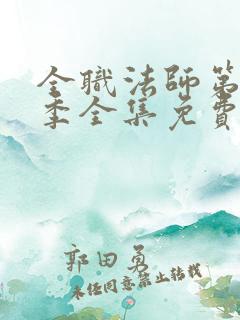 全職法師第
季全集免費
郭田勇
未经同意禁止转载